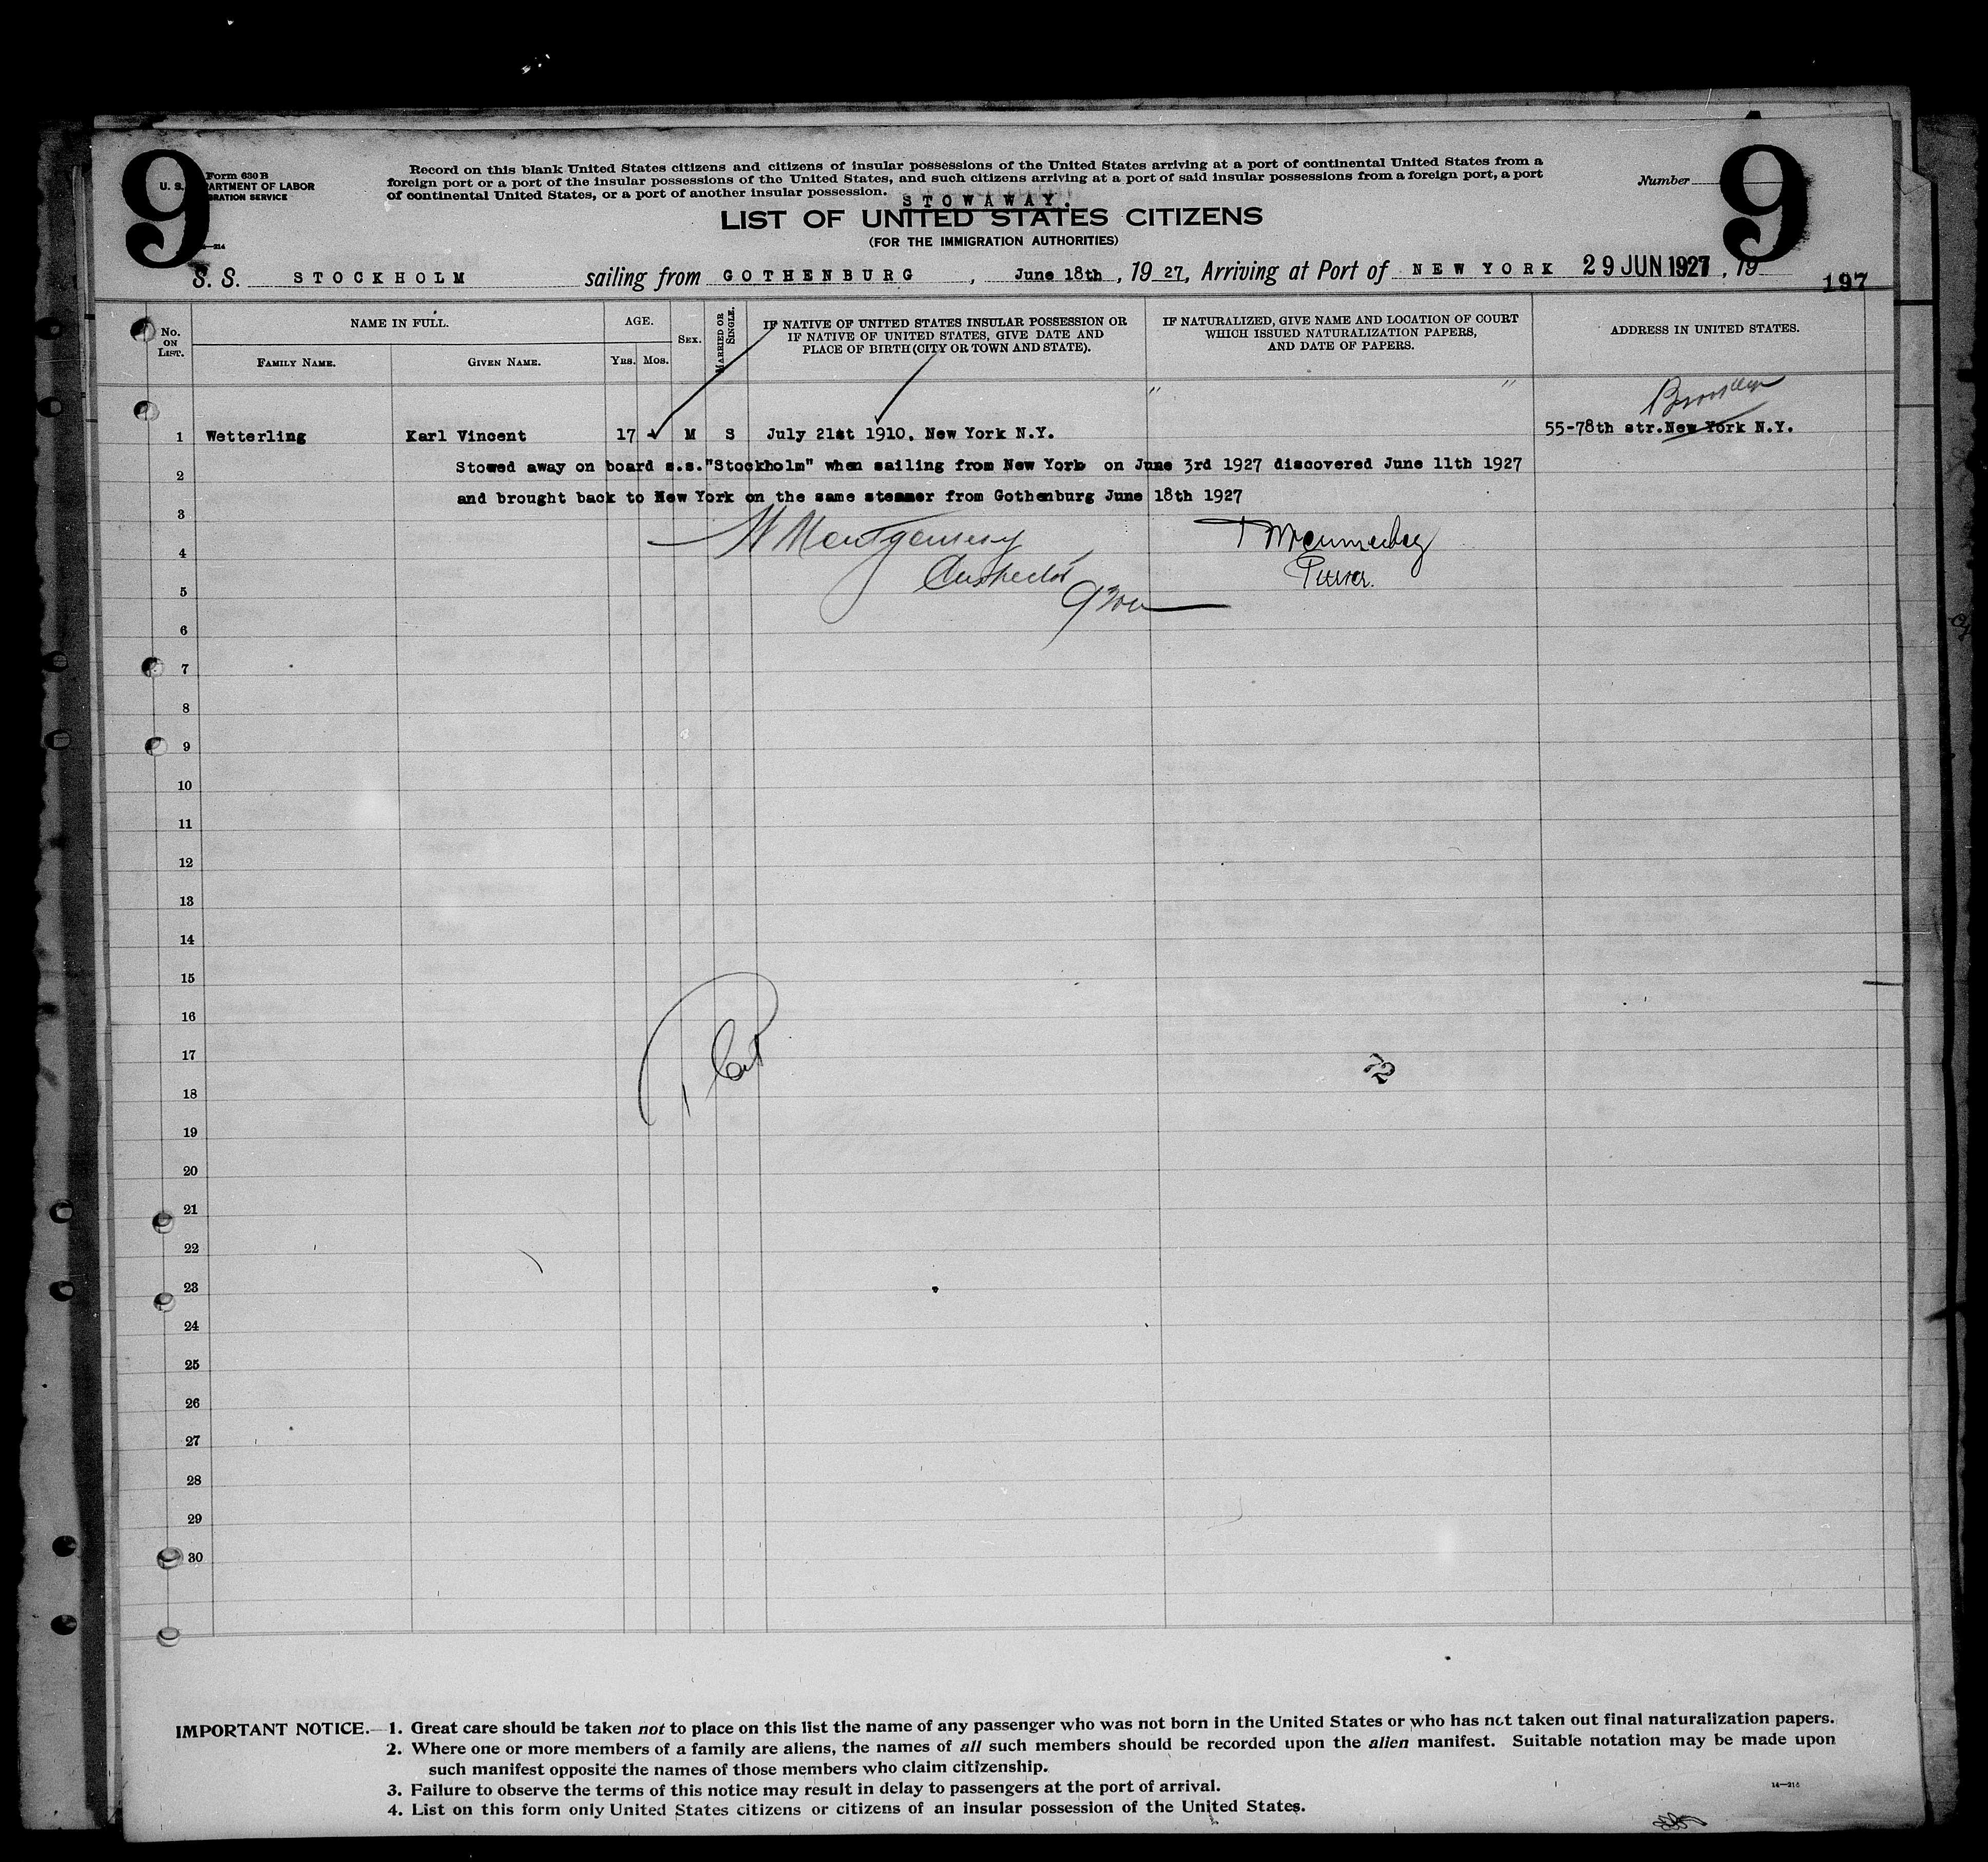 9
9
Form 630 B
U. S. DEPARTMENT OF LABOR
IMMIGRATION SERVICE
Record on this blank United States citizens and citizens of insular possessions of the United States arriving at a port of continental United States from a
foreign port or a port of the insular possessions of the United States, and such citizens arriving at a port of said insular possessions from a foreign port, a port
of continental United States, or a port of another insular possession.
Number
STOWAWAY.
LIST OF UNITED STATES CITIZENS
(FOR THE IMMIGRATION AUTHORITIES)
S. S. STOCKHOLM sailing from GOTHENBURG, June 18th, 19 27, Arriving at Port of NEW YORK 29 JUN 1927, 19
197
No. ON LIST.
NAME IN FULL.
FAMILY NAME.
GIVEN NAME.
AGE.
YRS.
MOS.
SEX.
MARRIED OR SINGLE.
IF NATIVE OF UNITED STATES INSULAR POSSESSION OR
IF NATIVE OF UNITED STATES, GIVE DATE AND
PLACE OF BIRTH (CITY OR TOWN AND STATE).
IF NATURALIZED, GIVE NAME AND LOCATION OF COURT
WHICH ISSUED NATURALIZATION PAPERS,
AND DATE OF PAPERS.
ADDRESS IN UNITED STATES.
" "
Brooklyn
1 Wetterling Karl Vincent 17 - M S July 21st 1910. New York N.Y. 55-78th str. New York N.Y.
Stowed away on board s.s."Stockholm" when sailing from New York on June 3rd 1927 discovered June 11th 1927
2
and brought back to New York on the same steamer from Gothenburg June 18th 1927
3
Montgomery
4
Inspector
Purser.
5
6
7
8
9
10
11
12
13
14
15
16
17
72
18
19
20
21
22
23
24
25
26
27
28
29
30
IMPORTANT NOTICE.—1. Great care should be taken not to place on this list the name of any passenger who was not born in the United States or who has not taken out final naturalization papers.
2. Where one or more members of a family are aliens, the names of all such members should be recorded upon the alien manifest. Suitable notation may be made upon
such manifest opposite the names of those members who claim citizenship.
3. Failure to observe the terms of this notice may result in delay to passengers at the port of arrival.
14—216
4. List on this form only United States citizens or citizens of an insular possession of the United States.